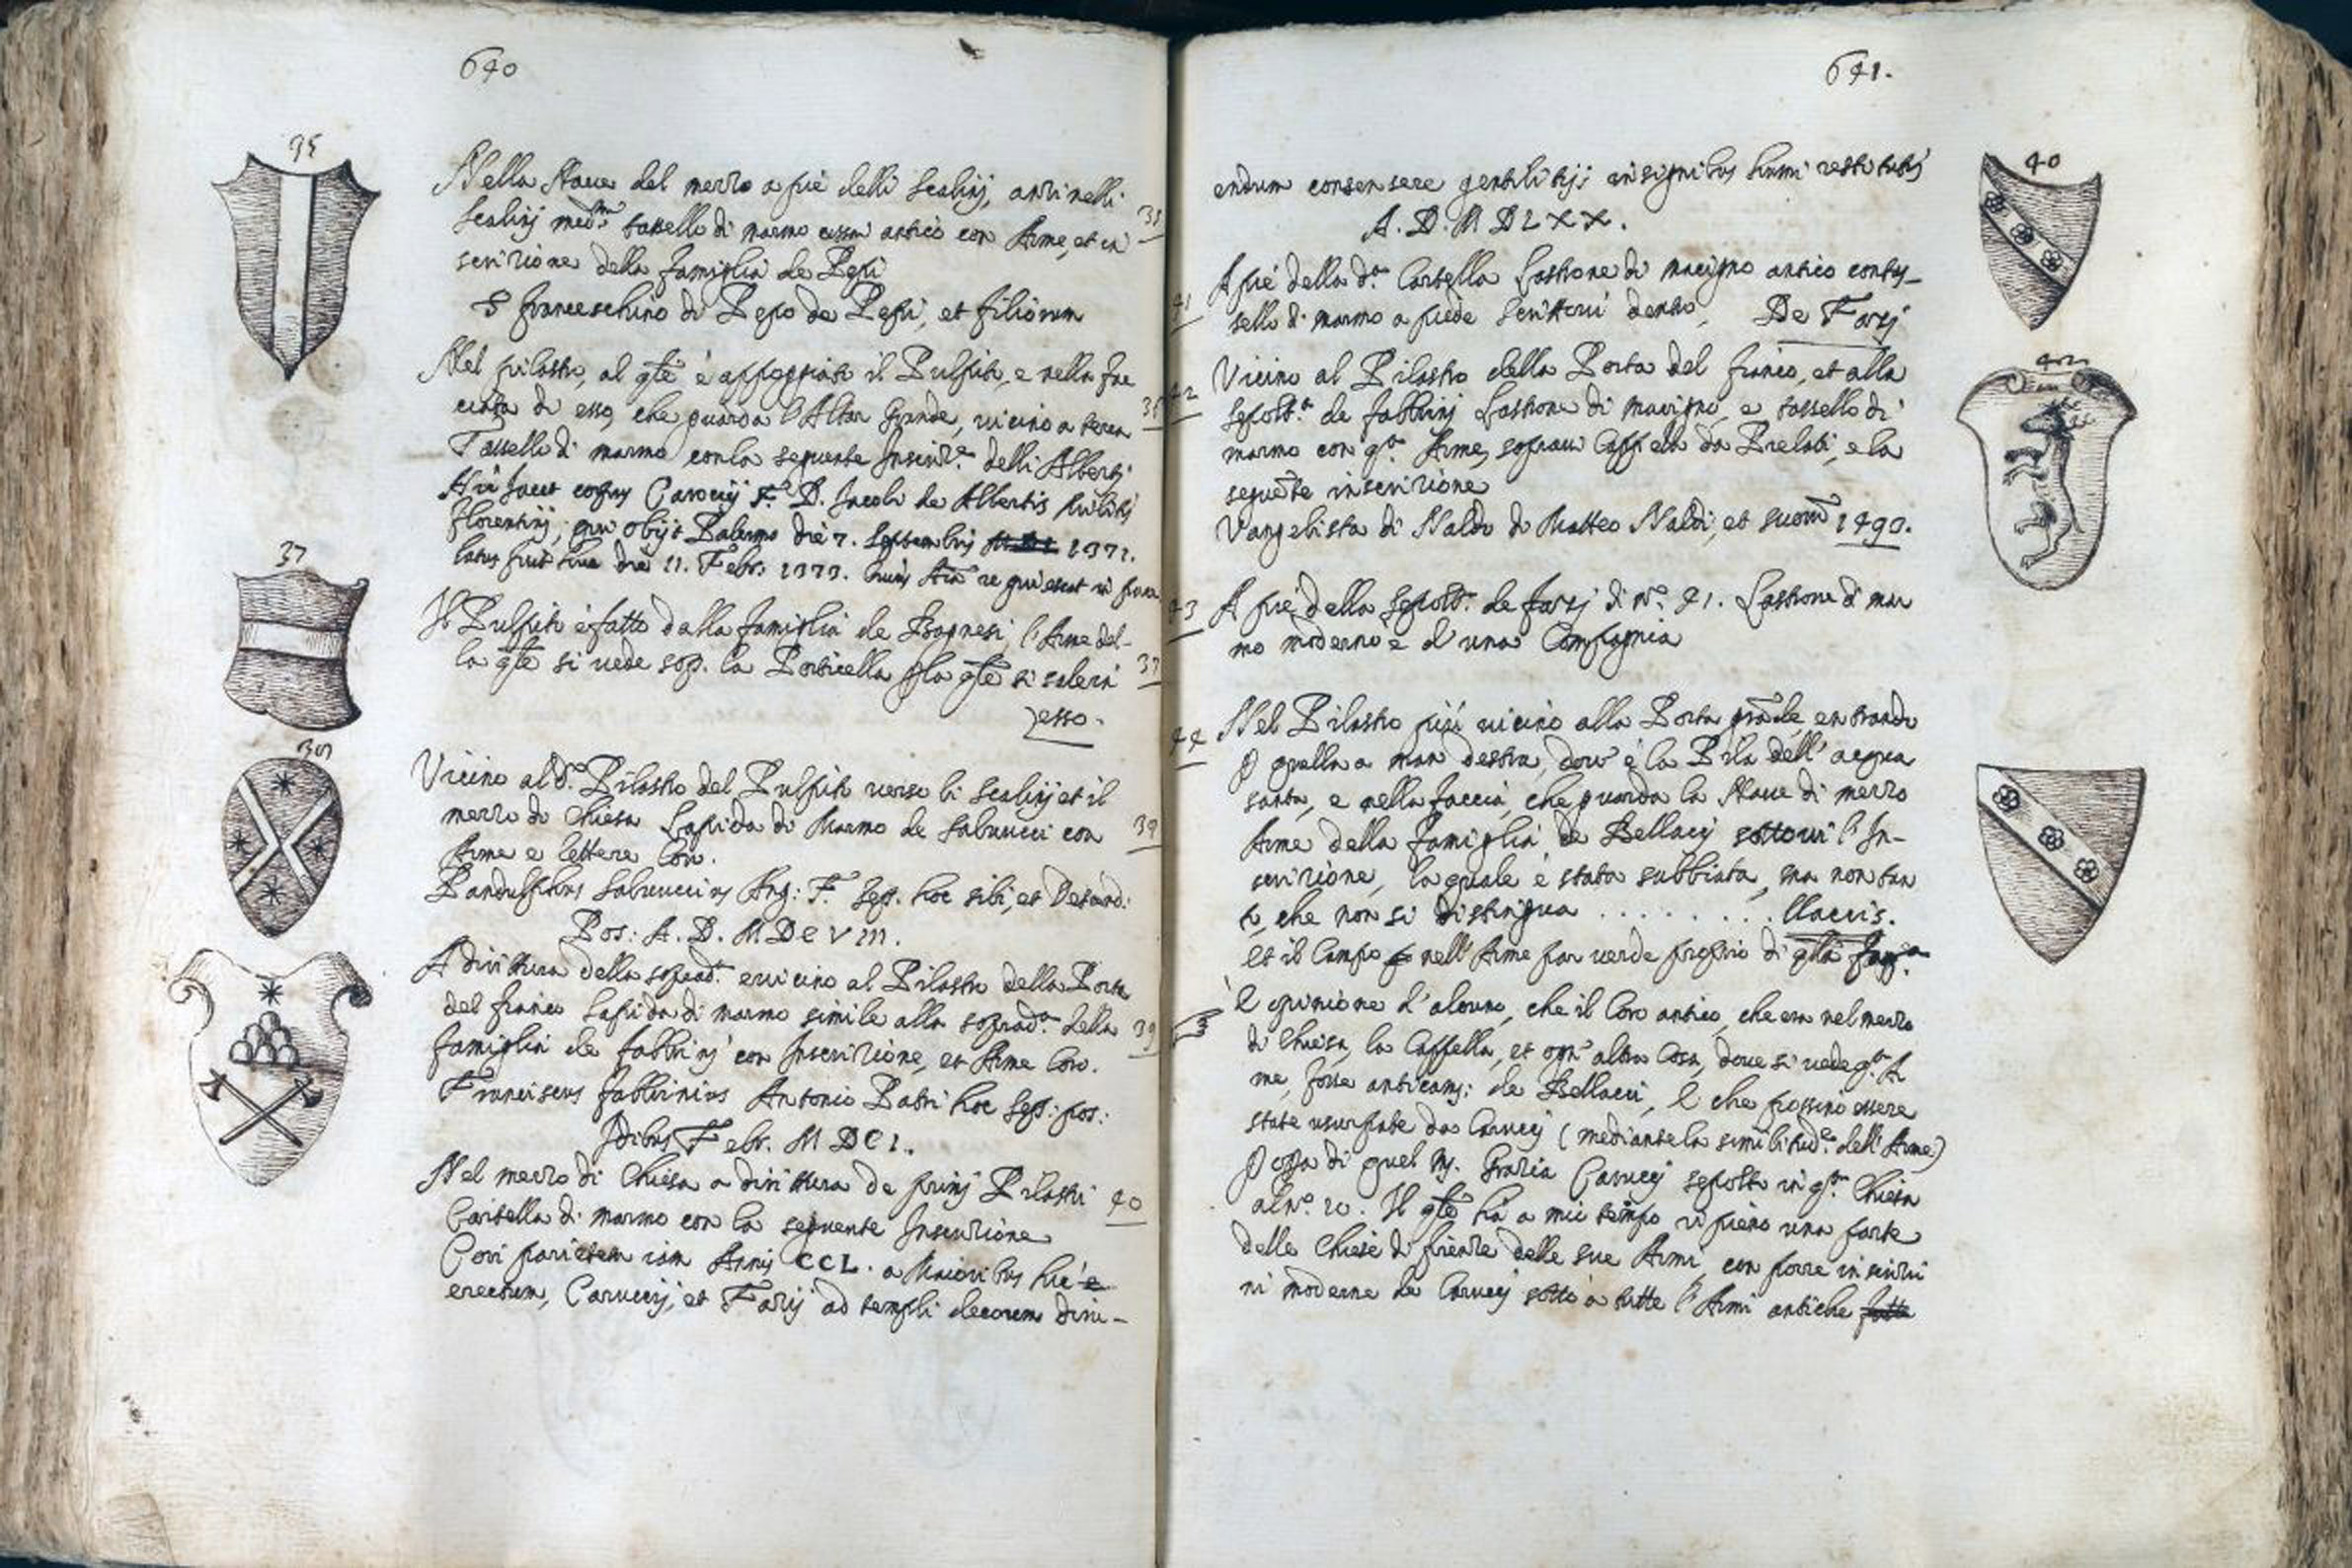 640
35
Nella Nave del mezzo a piè delli Scalinj, anzi nelli
Scalinj med.mi tassello di marmo assai antico con Arme, et in
scrizione della famiglia de Pepi
S franceschino di Pepo de Pepi, et filiorum
35
Nel pilastro, al qle è appoggiato il Pulpito, e nella fac
ciata di esso, che guarda l'Altar Grande, vicino a terra
Tassello di marmo con la seguente Inscriz.e delli Albertj
Hic Jacet corpus Caroccij F. D. Jacobi de Albertis Militis
florentinj, qui obijt Palermo die 7. Septembrij 1372.
latus fuit huc die 11. Febr. 1373. Cuius Aia requiescat in pace
37
Il Pulpito è fatto dalla famiglia de Bagnesi, l'Arme del-
la qle si vede sop. la Porticella p la qle si sale in
esso.
37
Vicino al d.o Pilastro del Pulpito verso li Scalinj et il
mezzo di Chiesa Lapida di Marmo de Sabrucci con
Arme e lettere Cosi.
Pandulphus Sabruccius Ang: F. Sep. hoc sibi, et Descend:
Pos: A. D. M D C VIII.
A dirittura della soprad.a e vicino al Pilastro della Porta
del fianco Lapida di marmo simile alla soprad.a della
famiglia de fabbrinj con Inscrizione, et Arme Cosi.
39
Franciscus fabbrinius Antonio Patri hoc Sep: pos:
Idibus Febr. M DCI.
Nel mezzo di Chiesa a dirittura de primj Pilastri
Cartella di marmo con la seguente Inscrizione
40
Cori parietem iam Annis CCL. a Maioribus hic
erectum, Caruccij, et Farsij ad templi decorem dimi-
641.
40
endum consensere gentilitijs insignibus humi restitutis
A. D. M D L X X.
41
A piè della d.a Cartella Lastrone di macigno antico con tas-
sello di marmo a piede Scrittovi dentro, De Farsj
42
Vicino al Pilastro della Porta del fianco, et alla
sepolt.a de fabbrinj Lastrone di macigno, e tassello di
marmo con q.a Arme, sopravi Cappello da Prelati, e la
seguete inscrizione
Vangelista di Naldo di Matteo Naldi, et suorum 1493.
42
43
A piè della Sepolt.a de farsj di N.o 41. Lastrone di mar
mo moderno è d'una Compagnia
44
Nel Pilastro più vicino alla Porta grade, entrando
p quella a man destra, dov'è la Pila dell'acqua
santa, e nella faccia, che guarda la Nave di mezzo
Arme della famiglia de Bellaccj sottovi l'In-
scrizione, la quale è stata subbiata, ma non tan
to, che non si distingua . . . . . . . . llaccis.
Et il Campo nell'Arme par verde proprio di qlla fam.a
È opinione d'alcuno, che il Coro antico, che era nel mezzo
di Chiesa, la Cappella, et ogn'altra Cosa, dove si vede q.a Ar
me, fosse anticam: de Bellacci, e che possino essere
state usurpate da Caruccj (mediante la similitud.e dell'Arme)
p opra di quel M. Grazia Caruccj sepolto in q.a Chiesa
al N.o 20. Il qle hà a mio tempo ripieno una parte
delle Chiese di firenze delle sue Armi, con porre inscrizi
ni moderne de Caruccj sotto a tutte l'Armi antiche